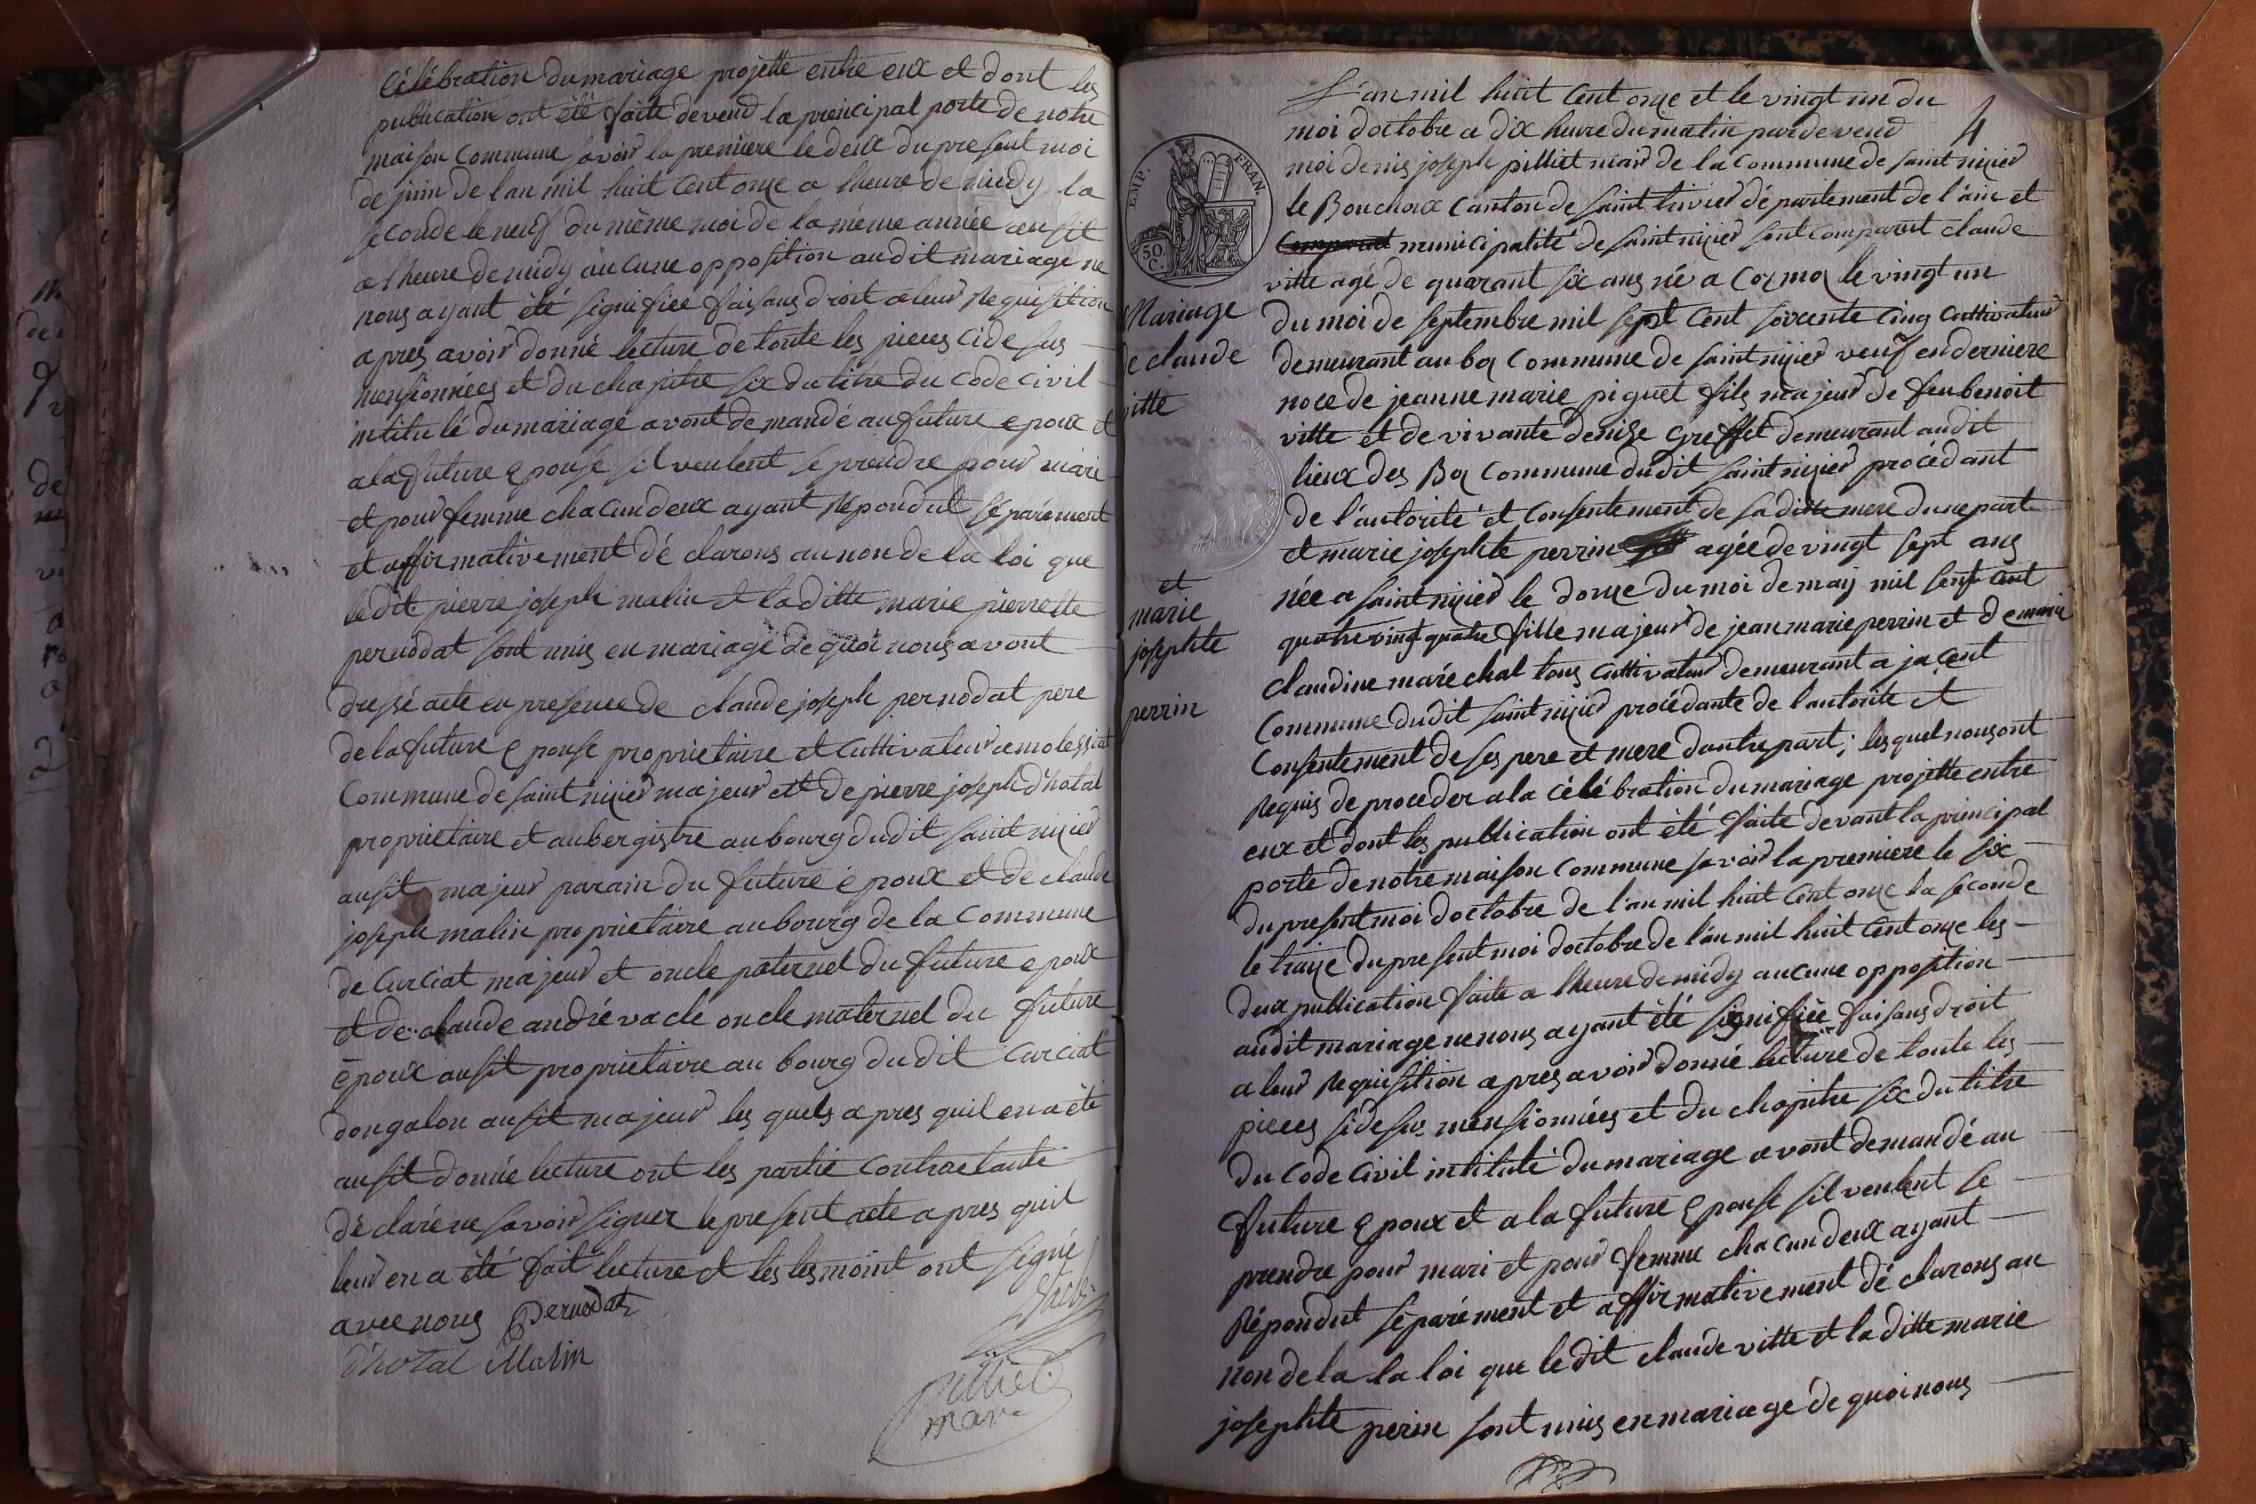 Célébration du mariage projette entre eux et dont les
publication ont été faite devend la principal porte de notre
maison commune savoir la premiere le deux du present moi
de juin de l'an mil huit cent onze a lheure de midy la
seconde le neuf du même moi de la même année ausit
a lheure de midy aucune opposition audit mariage ne
nous ayant été signifiee faisans droit a leur requisition
apres avoir donné lecture de toute les pieces cidesus
mensionnées et du chapitre six du titre du code civil
intitulé du mariage avont demandé au future epoux et
a la future epouse sil veulent se prendre pour marie
et pour femme chacun deux ayant repondut separément
et affirmativement déclarons au non de la loi que
ledit pierre joseph malin et la ditte marie pierrette
pernodat sont unis en mariage de quoi nous avont
dressé acte en presence de claude joseph pernodat pere
de la future epouse proprietaire et cultivateur a molessiat
Commune de saint nizier majeur et de pierre joseph d'hotal
proprietaire et aubergistre au bourg dudit saint nizier
ausit majeur parain du future époux et de claude
joseph malin proprietaire au bourg de la commune
de Curciat majeur et oncle paternel du future epoux
et de claude andré vacle oncle maternel du future
époux ausit proprietaire au bourg dudit Curciat
dongalon ausit majeur les quels apres quil en a été
ausit donnée lecture ont les partie contractante
déclaré ne savoir signer le present acte apres quil
leur en a été fait lecture et les tesmoint ont signé
avec nous Pernodat
D'hotal Malin
pilliet
mair
4
L'an mil huit cent onze et le vingt un du
moi doctobre a dix heure du matin pardevend
moi denis joseph pilliet mair de la commune de saint nizier
le Bouchoux canton de saint trivier département de l'ain et
Comparent municipalité de saint nizier sont comparut claude
EMP. FRAN.
50 C.
vitte agé de quarant six ans né a Cormoz le vingt un
du moi de septembre mil sept cent soixente cinq cultivateur
Mariage
de claude
vitte
et
marie
josephte
perrin
demeurant au boz commune de saint nizier veuf en derniere
noce de jeanne marie piguet fils majeur de feu benoit
vitte et de vivante denise Greffet demeurant audit
lieux des Boz commune dudit saint nizier procédant
de l'autorité et consentement de sa ditte mere dune part
et marie josephte perrin agée de vingt sept ans
née a saint nizier le douze du moi de may mil sept cent
quatre vingt quatre fille majeur de jean marie perrin et de marie
claudine maréchal tous cultivateur demeurant a jacent
Commune dudit saint nizier procédante de l'autorité et
Consentement de ses pere et mere dautre part; lesquel nousont
requis de proceder a la célébration du mariage projette entre
eux et dont les publication ont été faite devant la principal
porte de notre maison commune savoir la premiere le six
du present moi doctobre de l'an mil huit cent onze la seconde
le traize du present moi doctobre de l'an mil huit cent onze les
deux publication faite a lheure de midy aucune opposition
audit mariage ne nous ayant été signifiée faisans droit
a leur requisition apres avoir donné lecture de toute les
pieces sidesus mensionnées et du chapitre six du titre
du code civil intitulé du mariage avont demandé au
future epoux et a la future epouse sil veulent se
prendre pour mari et pour femme chacun deux ayant
répondut séparément et affirmativement déclarons au
non de la la loi que ledit claude vitte et la ditte marie
josephte perin sont unis en mariage de quoi nous